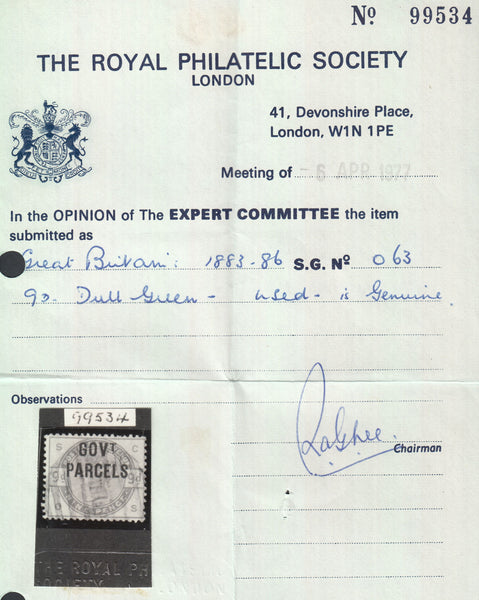 Nº 99534
THE ROYAL PHILATELIC SOCIETY
LONDON
41, Devonshire Place,
London, W1N 1PE
Meeting of - 6 APR 1977
In the OPINION of The EXPERT COMMITTEE the item
submitted as
Great Britain: 1883-86 S.G. Nº O63
9D. Dull Green - used - is Genuine.
Observations
99534
GOVT
PARCELS
S C
9D 9D
S
Chairman
THE ROYAL PH
SOCIETY LONDON